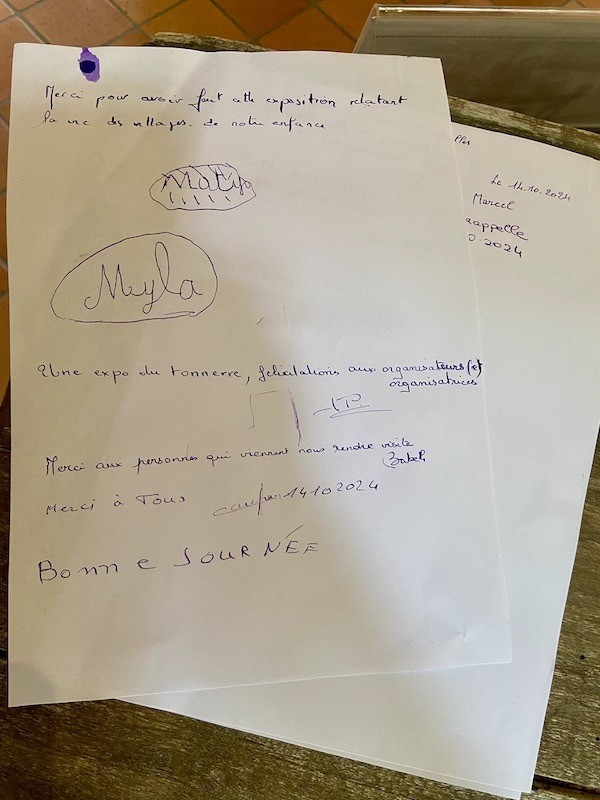 Merci pour avoir fait cette exposition relatant
la vie des villages de notre enfance
Matys
Meyla
Une expo du tonnerre, félicitations aux organisateurs (et
organisatrices
Merci aux personnes qui viennent nous rendre visite
Merci à Tous
14 10 2024
Bonne JOURNÉE
Le 14.10.2024
Marcel
rappelle
2024